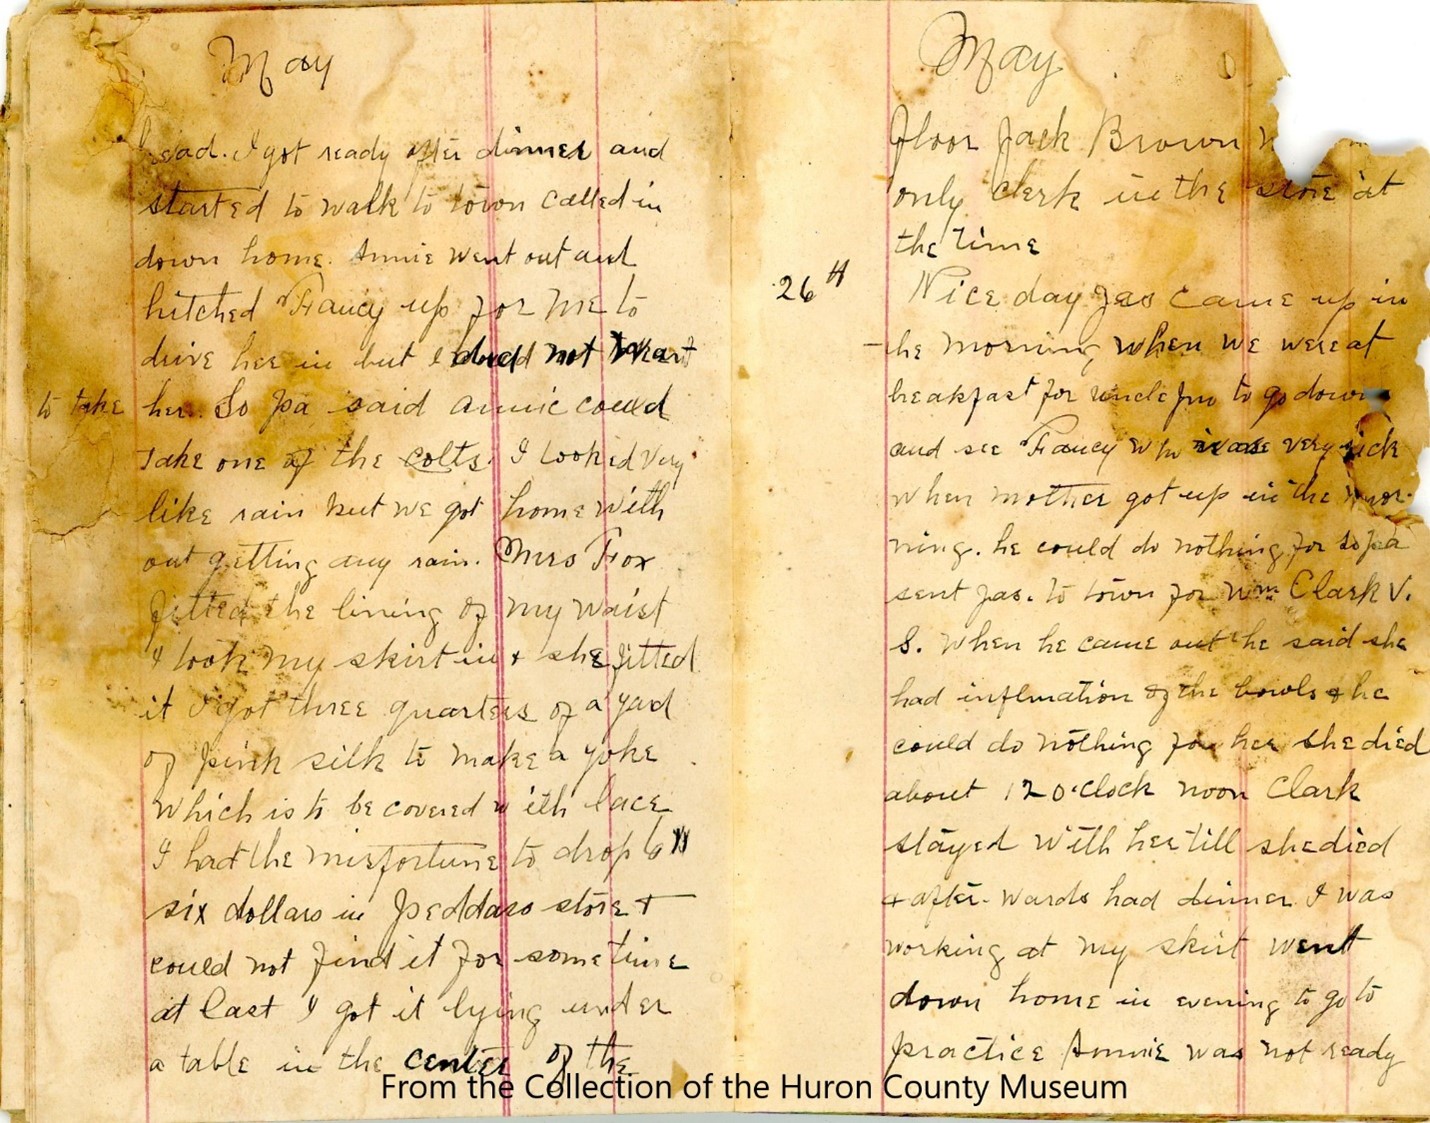 May
head. I got ready after dinner and
started to walk to town called in
down home. Annie went out and
hitched Fancy up for me to
drive her in but I did not want
to take her. So Pa said Annie could
take one of the colts. I looked very
like rain but we got home with
out getting any rain. Mrs Fox
fitted the lining of my waist
I took my skirt in & she fitted
it I got three quarters of a yard
of pink silk to make a yoke
which is to be covered with lace
I had the misfortune to drop 6"
six dollars in Jpeddass store &
could not find it for some time
at last I got it lying under
a table in the center of the
May
floor Jack Brown
only clerk in the store at
the time
26th Nice day Jas came up in
the morning when we were at
breakfast for uncle Jno to go down
and see Fancy who was very sick
when mother got up in the mor-
ning. he could do nothing for so pa
sent Jas. to town for Wm. Clark V.
S. when he came out he said she
had inflmation of the bowls & he
could do nothing for her she died
about 12 o'clock noon Clark
stayed with her till she died
& after-wards had dinner I was
working at my skirt went
down home in evening to go to
practice Annie was not ready
From the Collection of the Huron County Museum